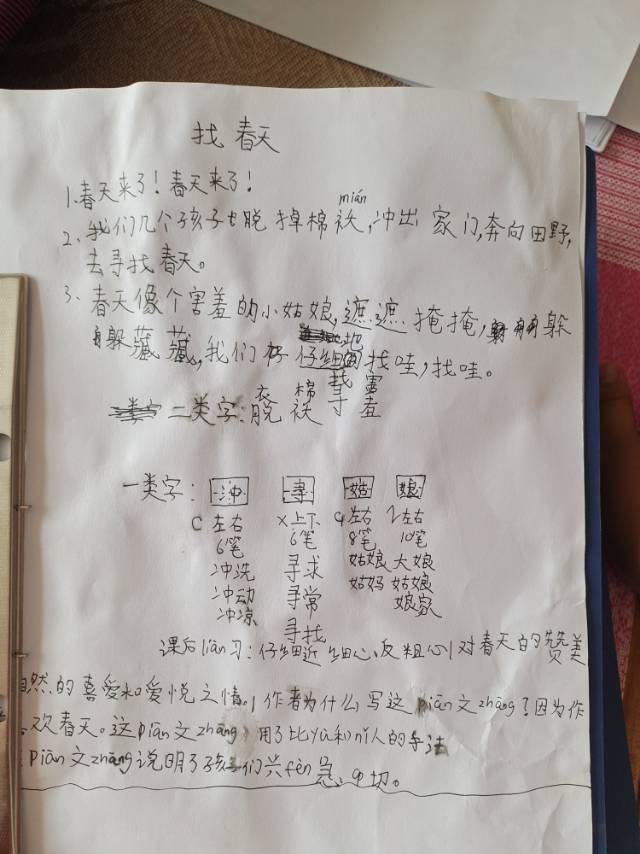 找春天
1.春天来了！春天来了！
mián
2.我们几个孩子 脱掉棉袄,冲出家门,奔向田野,
去寻找春天。
3.春天像个害羞的小姑娘,遮遮掩掩,躲
躲藏藏,我们 仔细地找哇,找哇。
衣 棉 找 害
二类字:脱袄寻羞
一类字: 冲 寻 姑 娘
C 左右 X 上下 G 左右 左右
6笔 6笔 8笔 10笔
冲洗 寻求 姑娘 大娘
冲动 寻常 姑妈 姑娘
冲凉 寻找 娘家
课后liàn习:仔细近细心,反粗心 对春天的赞美
自然的喜爱和爱悦之情。作者为什么写这piān文zhāng?因为作
欢春天。这piān文zhāng用了比yù和nǐ人的手法
piān文zhāng说明了孩子们兴fèn急 切。